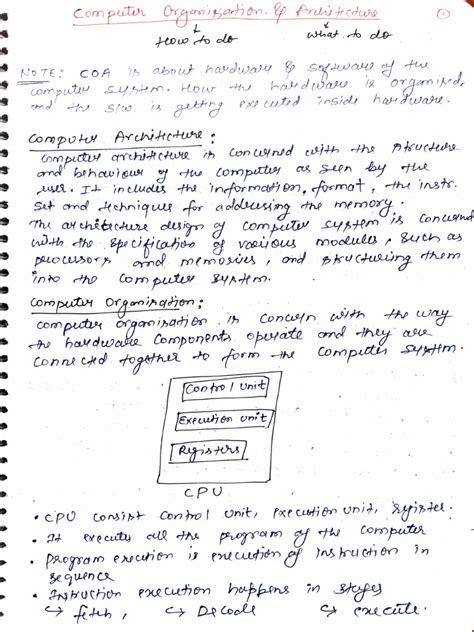 Computer Organisation & Architecture ①
↓ ↓
How to do what to do
NOTE: COA is about hardware & software of the
computer system. How the hardware is organised,
and the s/w is getting executed inside hardware.
Computer Architecture:
Computer architecture is concerned with the structure
and behaviour of the computer as seen by the
user. It includes the information, format, the instr.
set and techniques for addressing the memory.
The architecture design of computer system is concerned
with the specification of various modules, such as
processors and memories, and structuring them
into the computer system.
Computer Organisation:
Computer organisation is concern with the way
the hardware components operate and they are
connected together to form the computer system.
Control Unit
Execution unit
Registers
CPU
• CPU consist control unit, execution unit, register.
• It executes all the program of the computer
• Program execution is execution of instruction in
sequence
• Instruction execution happens in stages
↳ fetch, ↳ Decode ↳ execute.